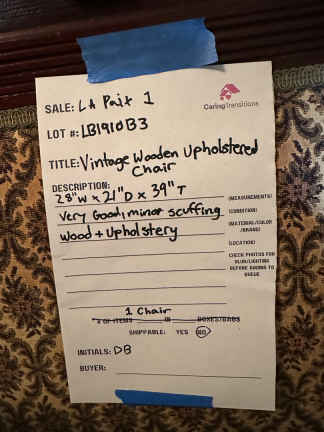 SALE: LA Paix 1
CaringTransitions
LOT #: LB1910B3
TITLE: Vintage Wooden Upholstered
Chair
DESCRIPTION:
28"W x 21"D x 39"T (MEASUREMENTS)
Very Good, minor scuffing (CONDITION)
Wood + Upholstery (MATERIAL/COLOR
/BRAND)
(LOCATION)
CHECK PHOTOS FOR
BLUR/LIGHTING
BEFORE ADDING TO
QUEUE
1 Chair
# OF ITEMS IN BOXES/BAGS
SHIPPABLE: YES NO
INITIALS: DB
BUYER: